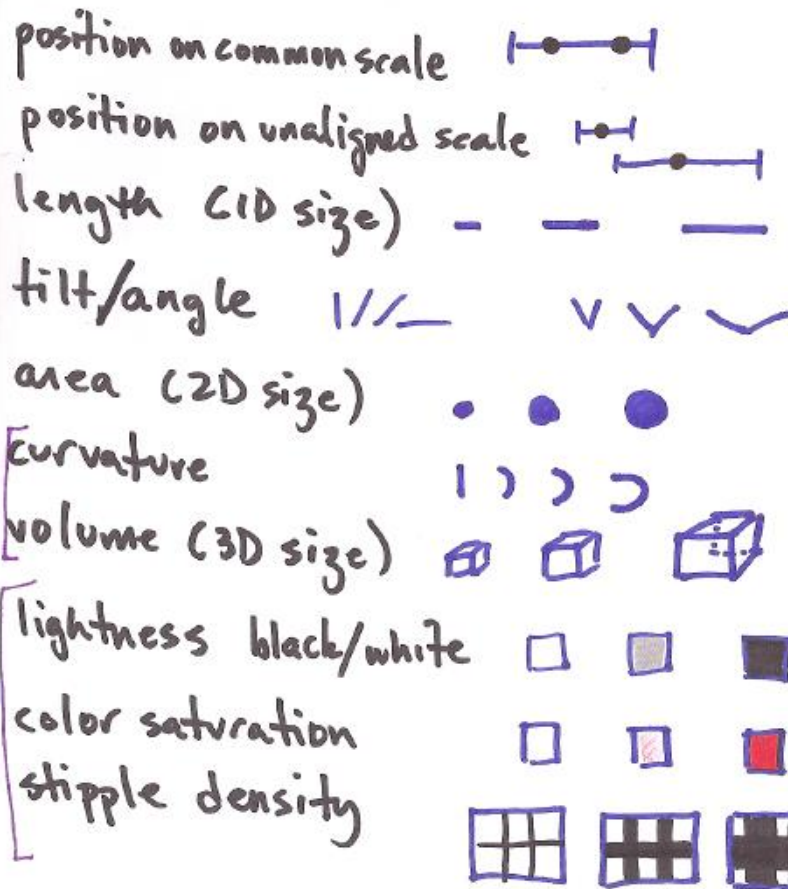 position on common scale
position on unaligned scale
length (1D size)
tilt/angle
area (2D size)
curvature
volume (3D size)
lightness black/white
color saturation
stipple density